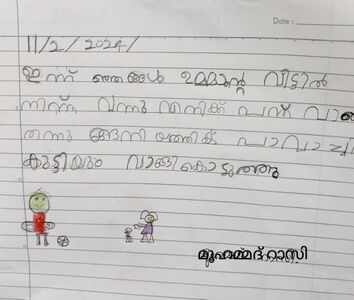 Date :
11/2/2024/
ഇന്ന് ഞങ്ങൾ ഉമ്മാന്റെ വീട്ടിൽ
നിന്ന് വന്നു എനിക്ക് പന്ത്
തന്നു
കുട്ടിയും വാങ്ങികൊടുത്തു
മുഹമ്മദ് റാസി